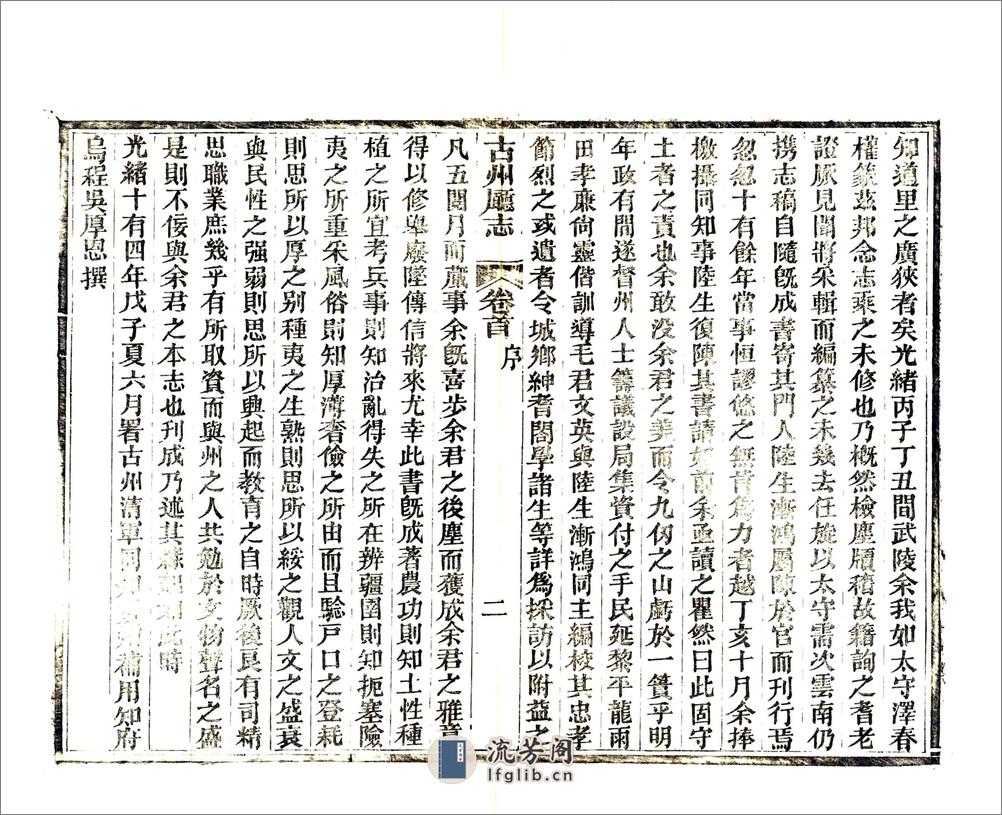 知道里之廣狹者矣光緒丙子丁丑間武陵余我如太守澤春
權篆茲邦念志乘之未修也乃槪然檢塵牘稽故籍詢之耆老
證厥見聞將采輯而編纂之未幾去任旋以太守需次雲南仍
携志稿自隨旣成書寄其門人陸生漸鴻屬陳於官而刊行焉
忽忽十有餘年當事恒謬悠之無肯爲力者越丁亥十月余捧
檄攝同知事陸生復陳其書請如前余亟讀之瞿然曰此固守
土者之責也余敢沒余君之美而令九仞之山虧於一簣乎明
年政有間遂督州人士籌議設局集資付之手民延黎平龍雨
田孝廉尙靈偕訓導毛君文英與陸生漸鴻同主編校其忠孝
節烈之或遺者令城鄉紳耆閤學諸生等詳爲採訪以附益之
古州廳志 卷首 序 二
凡五閱月而蕆事余旣喜步余君之後塵而獲成余君之雅意
得以修舉廢墜傳信將來尤幸此書旣成著農功則知土性種
植之所宜考兵事則知治亂得失之所在辨疆圉則知扼塞險
夷之所重采風俗則知厚薄奢儉之所由而且驗戸口之登耗
則思所以厚之别種夷之生熟則思所以綏之觀人文之盛衰
與民性之强弱則思所以興起而敎育之自時厥後良有司精
思職業庶幾乎有所取資而與州之人共勉於文物聲名之盛
是則不佞與余君之本志也刊成乃述其緣起如此時
光緒十有四年戊子夏六月署古州清軍同知補用知府
烏程吳厚恩撰
流芳閣
lfglib.cn